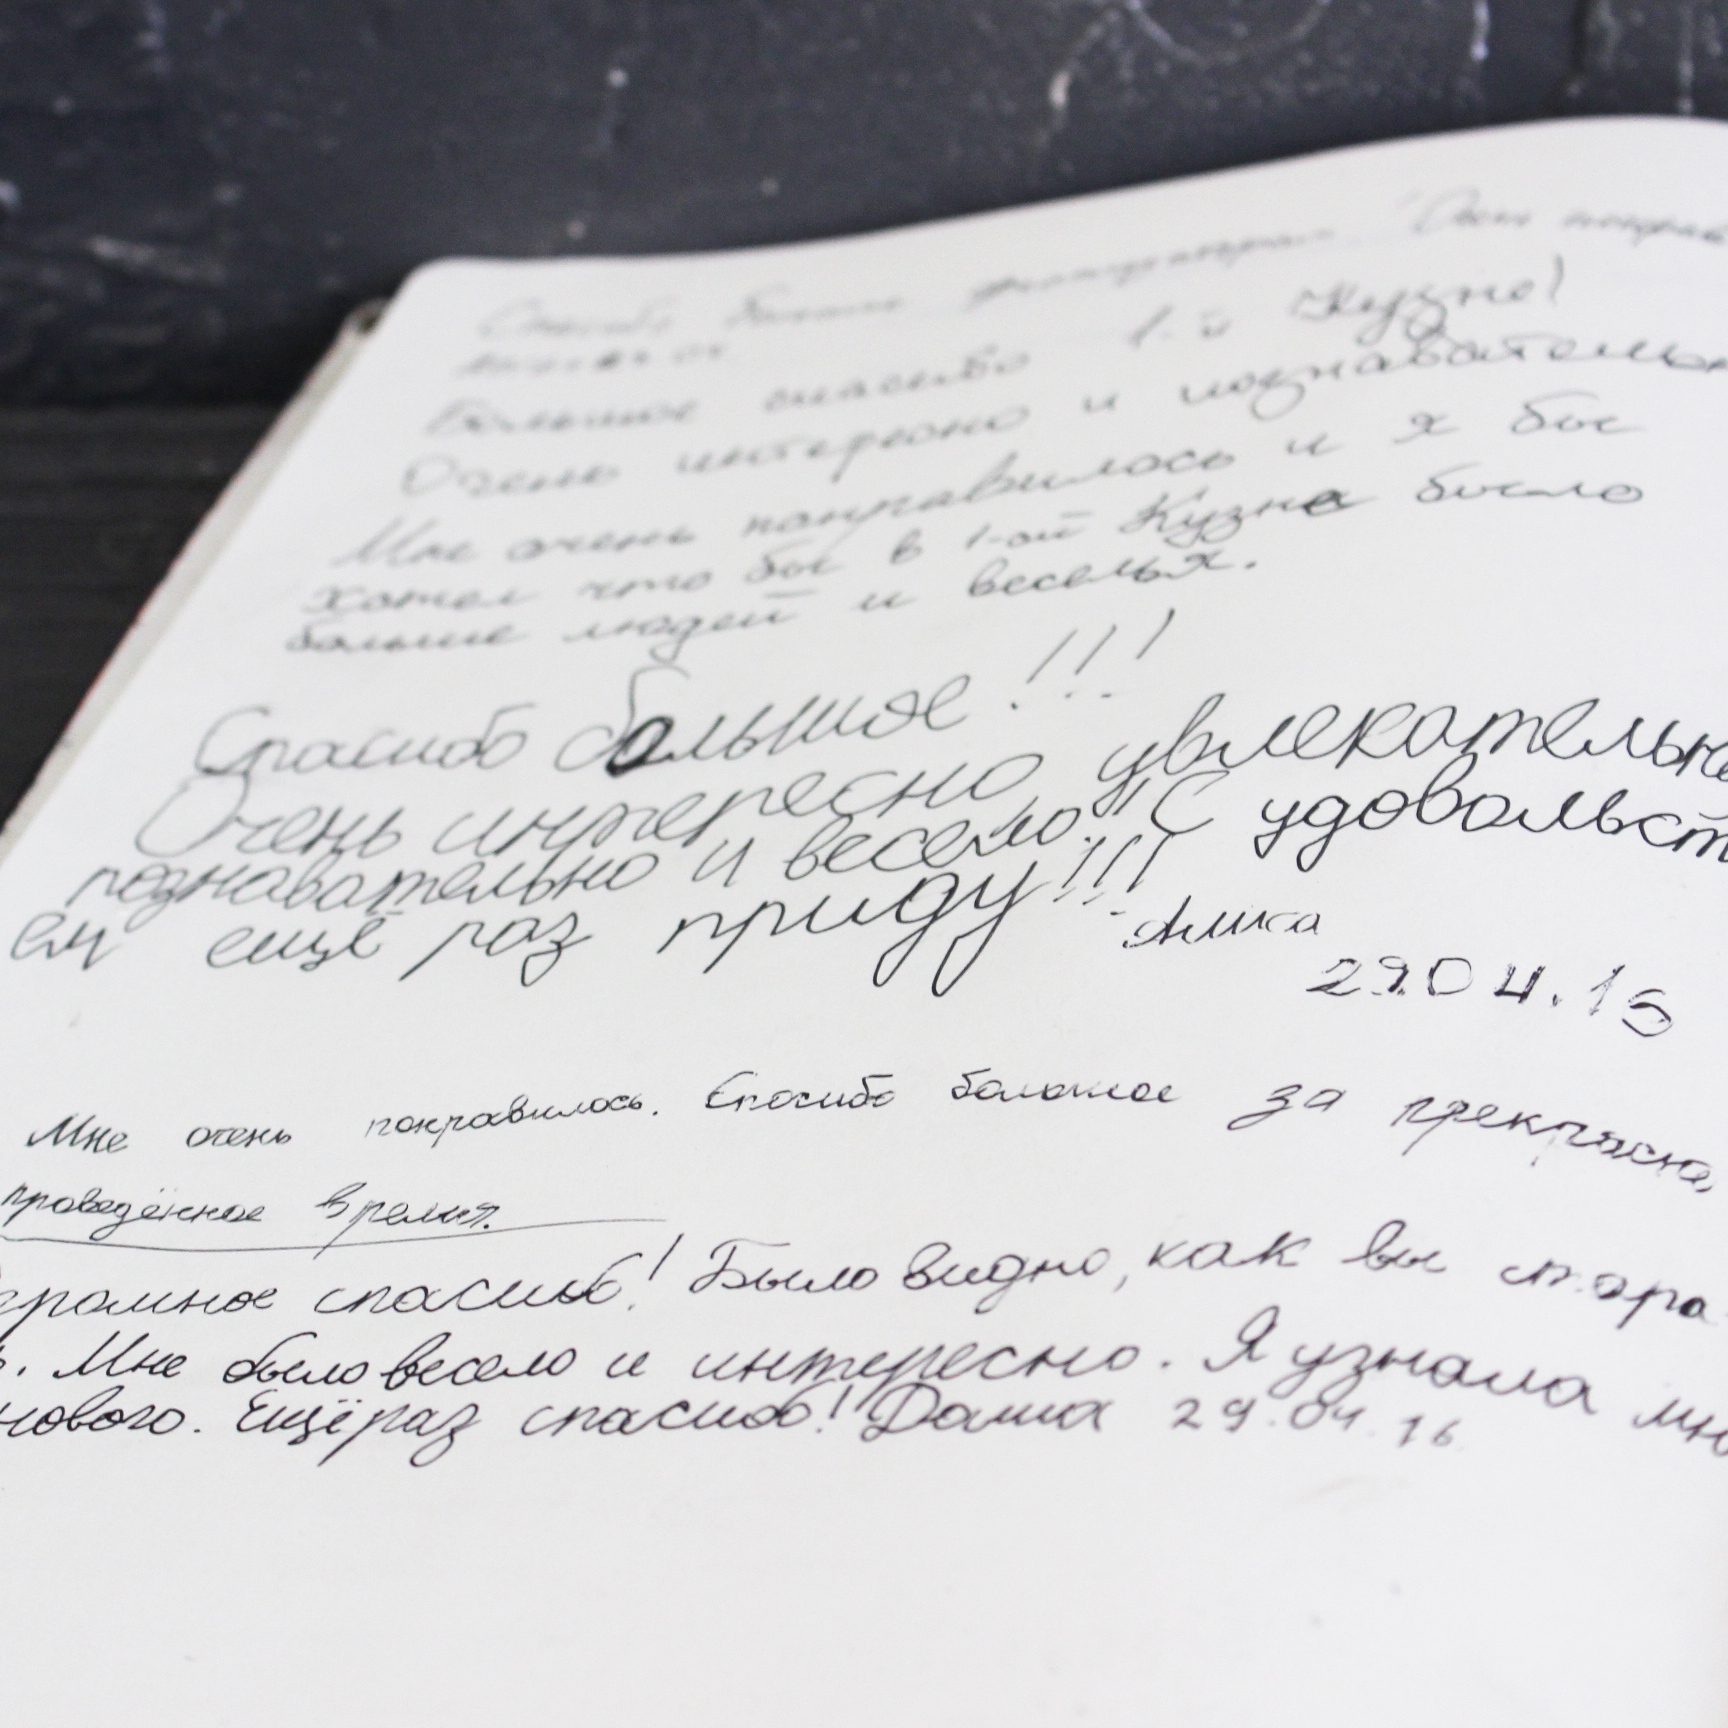 Спасибо большое
Большое спасибо 1-й Кузне!
Очень интересно и познавательн
Мне очень понравилось и я бы
хотел что бы в 1-ой Кузне было
больше людей и веселья.
Спасибо большое!!!
Очень интересно, увлекательно
познавательно и весело!! С удовольст
ем ещё раз приду!!!
Алиса
29.04.16
Мне очень понравилось. Спасибо большое за прекрасно,
проведённое время.
громное спасибо! Было видно, как вы стара
ь. Мне было весело и интересно. Я узнала мно
нового. Ещё раз спасибо! Даша 29.04.16